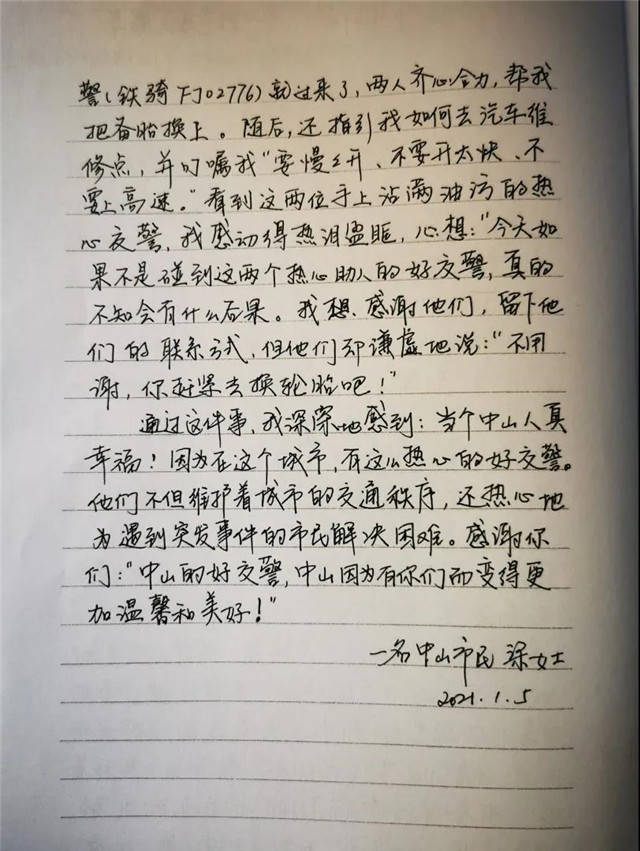 警（铁骑FJ02776）就过来了，两人齐心合力，帮我
把备胎换上。随后，还指引我如何去汽车维
修点，并叮嘱我“要慢慢开、不要开太快、不
要上高速。”看到这两位手上沾满油污的热
心交警，我感动得热泪盈眶，心想：“今天如
果不是碰到这两个热心助人的好交警，真的
不知会有什么后果。我想感谢他们，留下他
们的联系方式，但他们却谦虚地说：“不用
谢，你赶紧去换轮胎吧！”
通过这件事，我深深地感到：当个中山人真
幸福！因为在这个城市，有这么热心的好交警。
他们不但维护着城市的交通秩序，还热心地
为遇到突发事件的市民解决困难。感谢你
们：“中山的好交警，中山因为有你们而变得更
加温馨和美好！”
一名中山市民 涂女士
2021.1.5